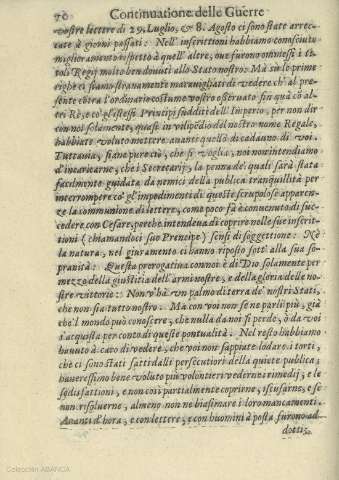 70 Continuatione delle Guerre
vostre lettere di 29. Luglio, & 8. Agosto ci sono state arrec-
cate à giorni passati: Nell' inscrittioni habbiamo conosciuto
miglioramento rispetto à quell' altre, oue furono ommessi i ti
toli Regij molto ben douuti allo Stato nostro: Mà sù le prime
righe ci siano stranamente marauigliati di vedere ch'al pre-
sente cōtra l'ordinario costume vostro osseruato sin quà cō al-
tri Rè, e co' gl'istessi Principi sudditi dell' Imperio, per non dir
con noi solamente, quasi in vilipēdio del nostro nome Regale,
habbiate voluto mettere auanti quello di cadauno di voi.
Tuttauia, siane pure ciò, che si voglia, noi non intendiamo
d'incaricarne, che i Secretarij, la penna de' quali sarà stata
facilmente guidata da nemici della publica tranquillità per
interrompere co' gl'impedimenti di queste scrupolose apparen-
ze la communione di lettere, come poco fà è conuenuto di suc-
cedere con Cesare, perche intendeua di coprire nelle sue inscrit-
tioni (chiamandoci suo Prencipe) sensi di soggettione: Nò
la natura, nel giuramento ci hanno riposto sott' alla sua so-
pranità: Questa prerogatiua con noi è di Dio, solamente per
mezzo della giustitia dell' armi nostre, e della gloria delle no-
stre vittorie: Non v'hà vn palmo di terra de' nostri Stati,
che non sia tutto nostro. Ma con voi non se ne parli più, già
che 'l mondo può conoscere, che nulla da noi si perde, ò da voi
s'acquista per conto di queste pontualità. Nel resto habbiamo
hauuto à caro di vedere, che voi non sappiate lodare i torti,
che ci sono stati fatti dalli persecutori della quiete publica;
haueressimo bene voluto più volontieri vederne i rimedij, e le
sodisfattioni, e non così partialmente coprirne, iscusarne, e se
non risoluerne, almeno non ne biasimare i loro mancamenti.
Auanti d'hora, e con lettere, e con huomini à posta furono ad-
dotti,
Colección ABANCA